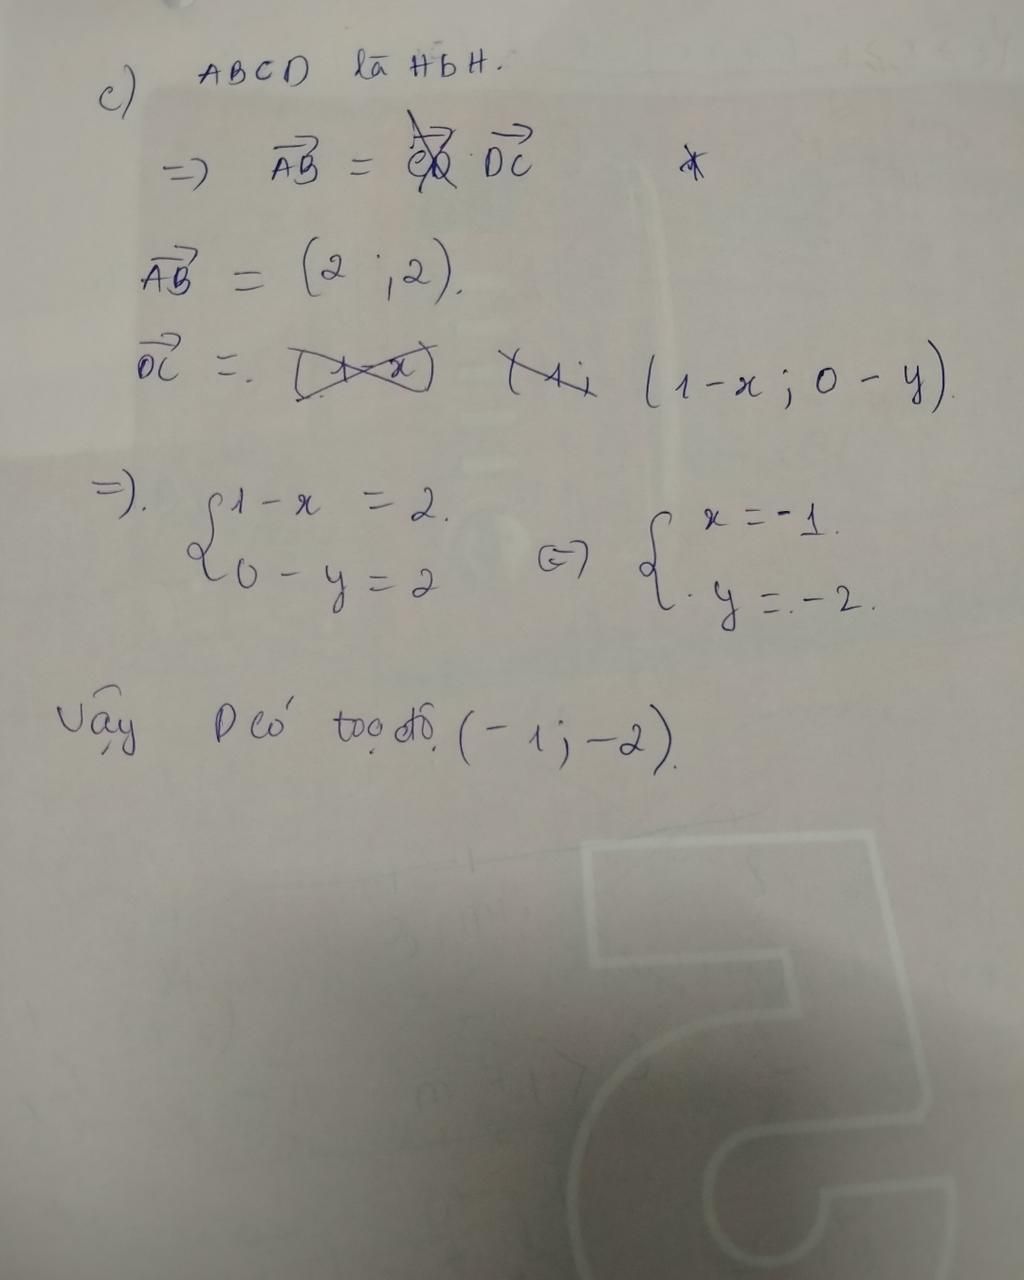 c) ABCD là HbH.
=> $\overrightarrow{AB}$ = $\overrightarrow{DC}$ *
$\overrightarrow{AB}$ = (2 ; 2).
$\overrightarrow{DC}$ =. (1-x) (1; (1-x; 0-y).
=>. { 1-x = 2. 0-y = 2 <=> { x = -1. y =. -2.
Vậy D có toạ độ (-1; -2).